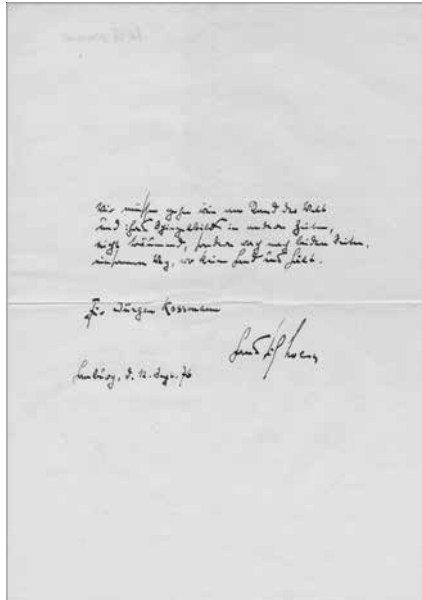 Wir müssen gehen wie am Rand der Welt
und ihres Spiegelbilds in anderen Zeiten,
nicht träumend, sondern wach nach beiden Seiten,
einsamen Weg, wo keine Hand uns hält.
Für Jürgen Kossmann
Hans
Hamburg, d. 12. Sept. 76